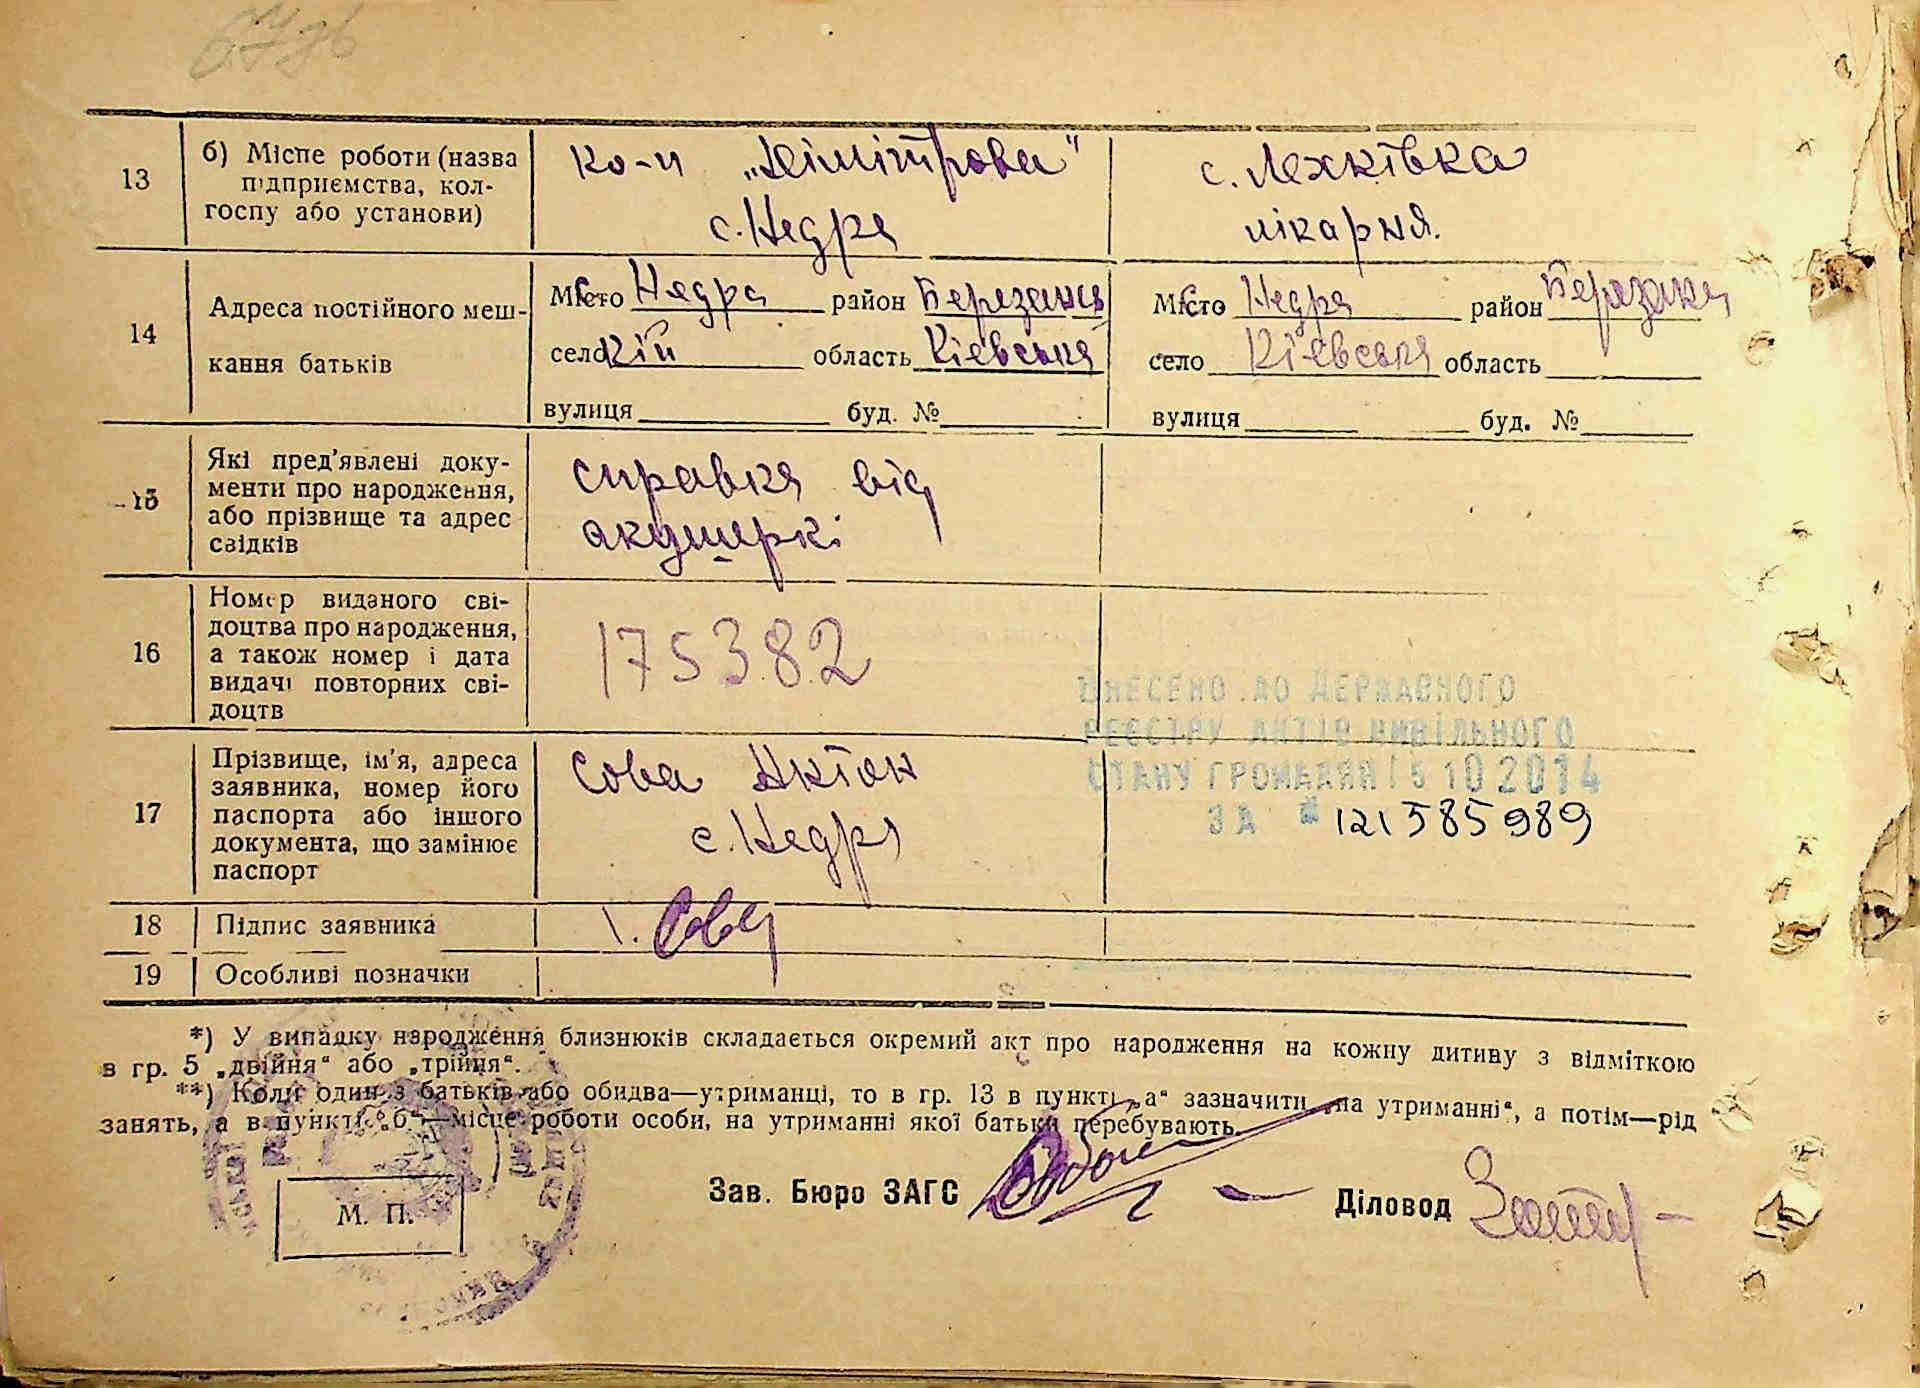 13
б) Місце роботи (назва
підприємства, кол-
госпу або установи)
ко-п „Дімітрова"
с. Недра
с. Лехківка
лікарня.
14
Адреса постійного меш-
кання батьків
Місто Недра район Березансь
село кій область Кієвська
вулиця буд. №
Місто Недра район Березань
село Кієвська область
вулиця буд. №
15
Які пред'явлені доку-
менти про народження,
або прізвище та адрес
свідків
справка від
акушеркі
16
Номер виданого сві-
доцтва про народження,
а також номер і дата
видачі повторних сві-
доцтв
175382
ВНЕСЕНО ДО ДЕРЖАВНОГО
РЕЄСТРУ АКТІВ ЦИВІЛЬНОГО
СТАНУ ГРОМАДЯН 15 10 2014
ЗА № 121585989
17
Прізвище, ім'я, адреса
заявника, номер його
паспорта або іншого
документа, що замінює
паспорт
Сова Антон
с. Недра
18
Підпис заявника
Сова
19
Особливі позначки
*) У випадку народження близнюків складається окремий акт про народження на кожну дитину з відміткою
в гр. 5 „двійня“ або „трійця“.
**) Коли один з батьків або обидва—утриманці, то в гр. 13 в пункті „а“ зазначити „на утриманні“, а потім—рід
занять, а в пункті „б“—місце роботи особи, на утриманні якої батьки перебувають.
Зав. Бюро ЗАГС
Діловод
М. П.